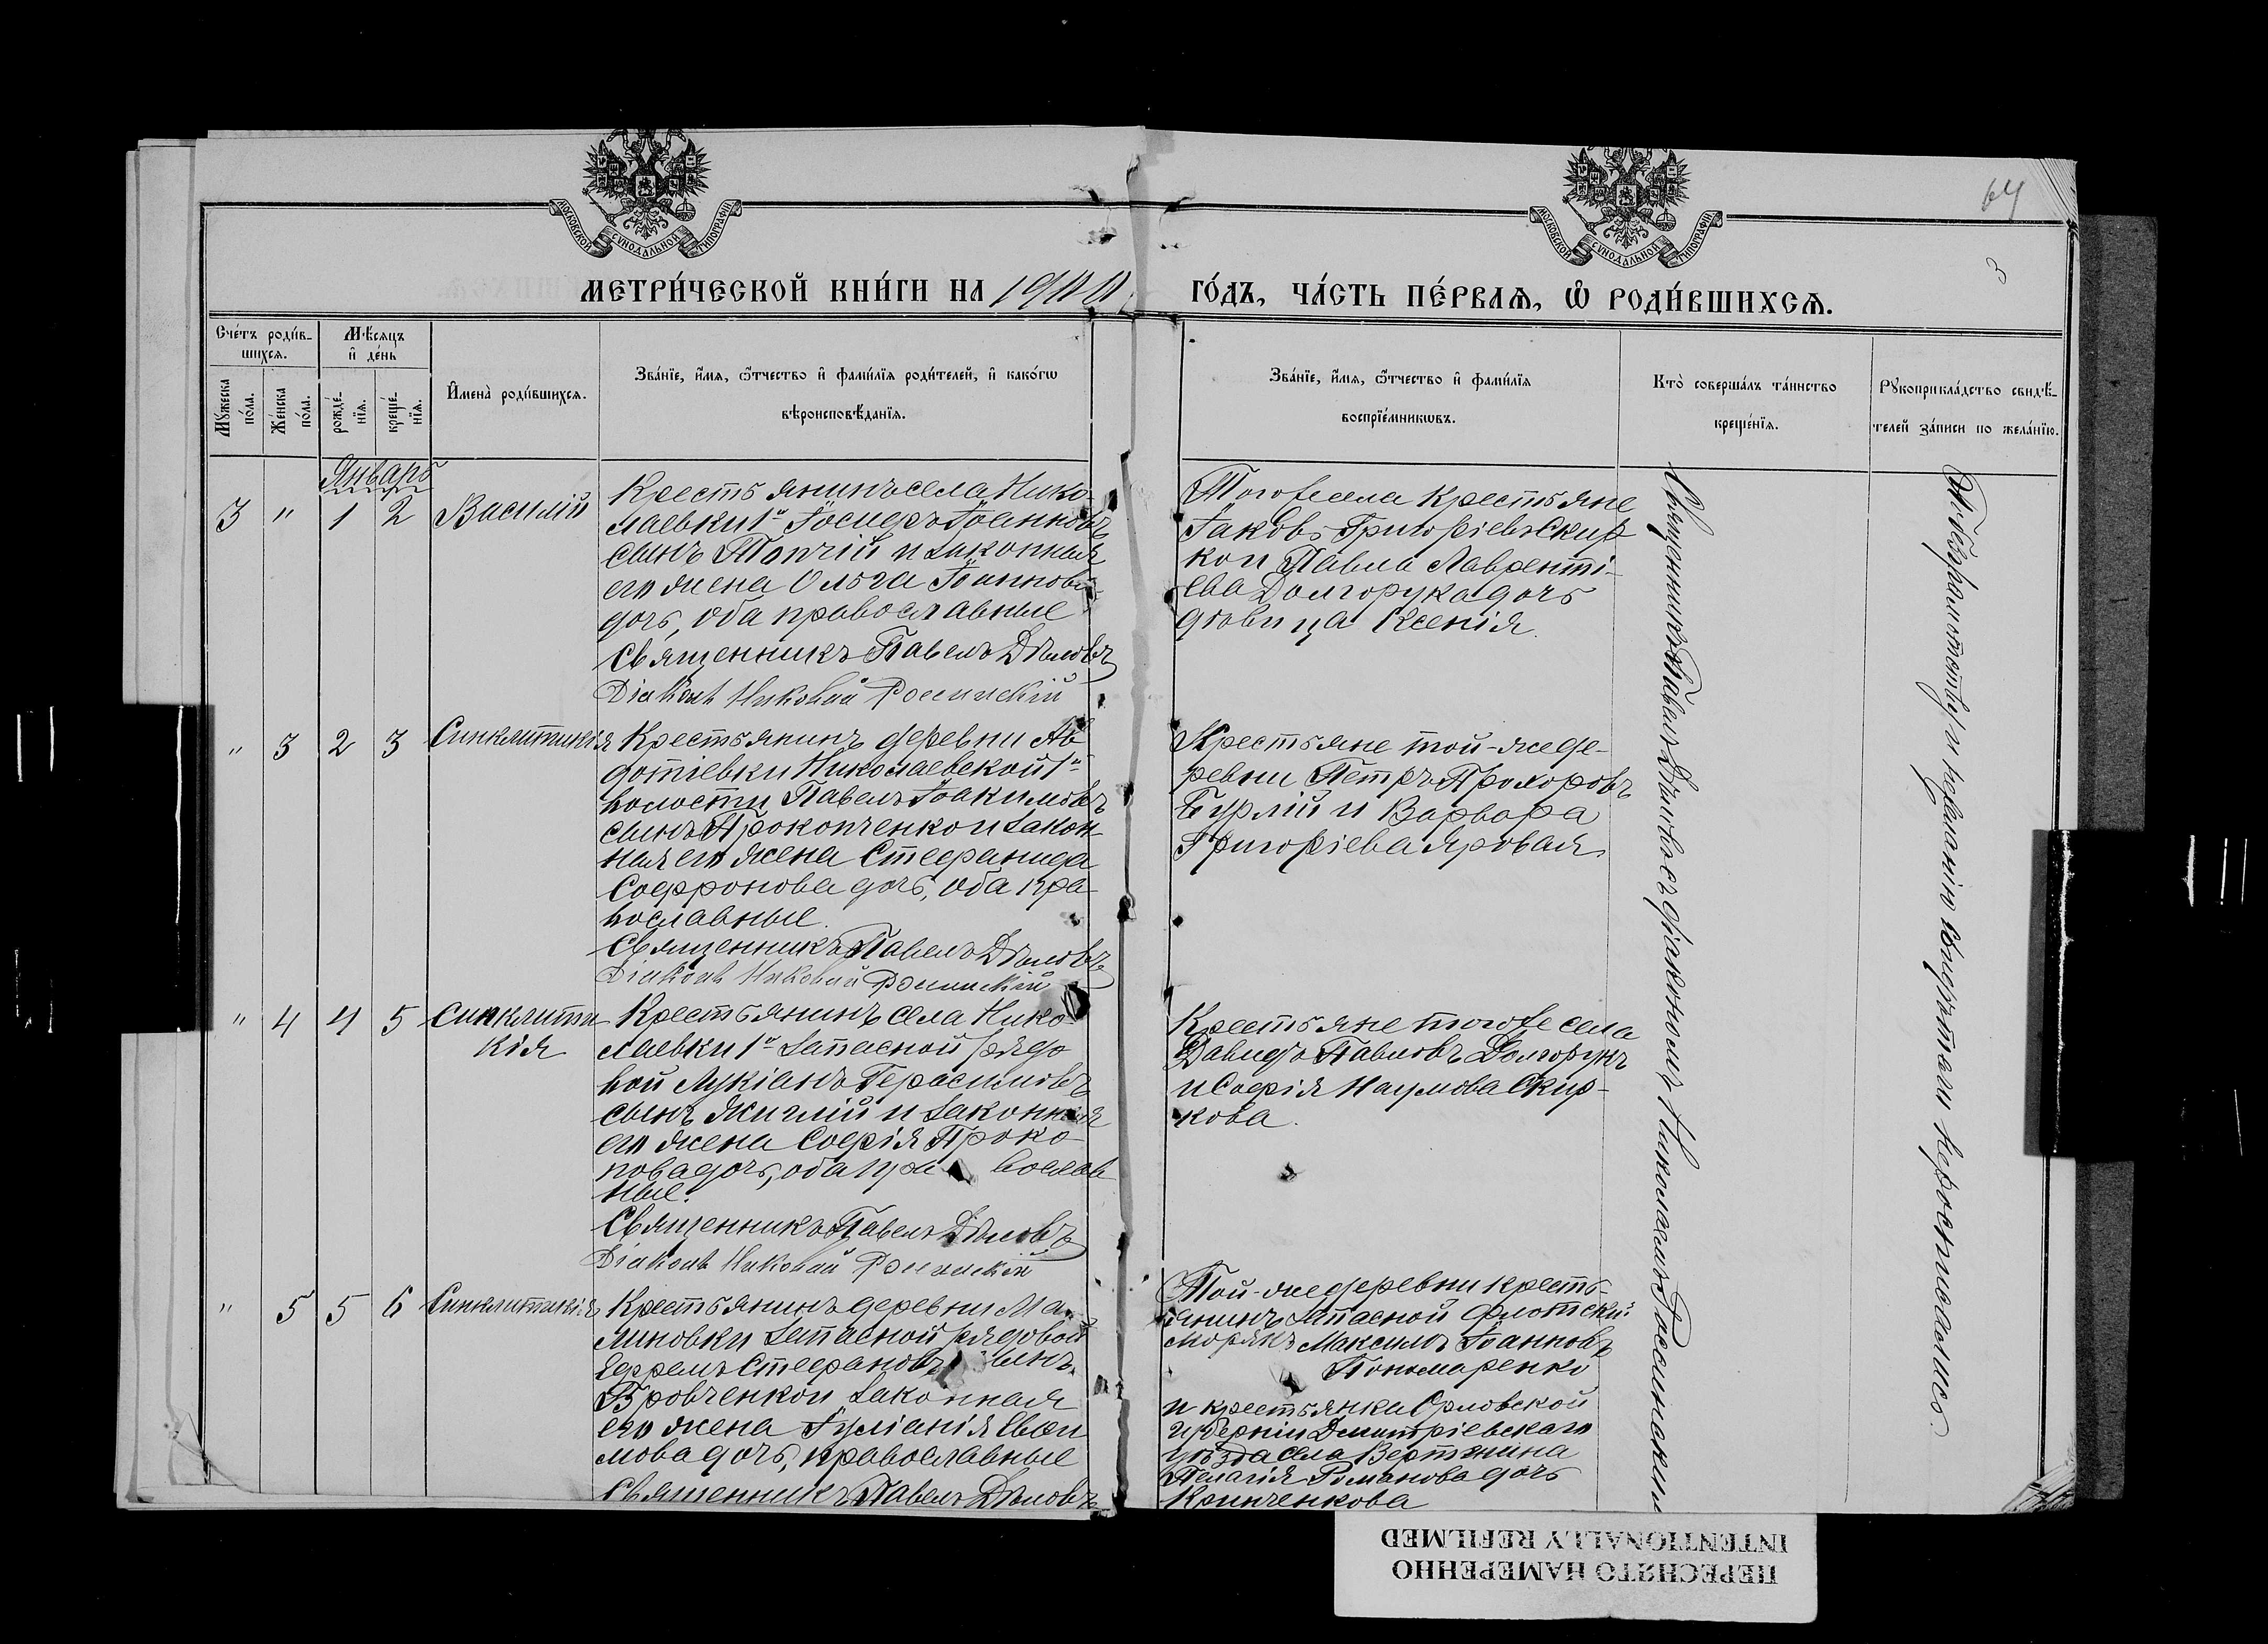 МОСКОВСКОЙ СѴНОДАЛЬНОЙ ТИПОГРАФІИ
МОСКОВСКОЙ СѴНОДАЛЬНОЙ ТИПОГРАФІИ
64
3
МЕТРИ́ЧЕСКОЙ КНИ́ГИ НА 1900
ГО́ДЪ, ЧА́СТЬ ПЕ́РВАѦ, Ѡ҆ РОДИ́ВШИХСѦ.
Сче́тъ роди́в-
шихсѧ.
Мѣ́сѧцъ
и҆ де́нь
Мꙋ́жеска
по́ла.
Же́нска
по́ла.
рожде́-
нїѧ.
креще́-
нїѧ.
И҆мена̀ роди́вшихсѧ.
Зва́нїе, и҆́мѧ, ѻ҆́тчество и҆ фами́лїѧ роди́телей, и҆ како́гѡ
вѣроисповѣ́данїѧ.
Зва́нїе, и҆́мѧ, ѻ҆́тчество и҆ фами́лїѧ
воспрїе́мникѡвъ.
Кто̀ соверша́лъ та́инство
креще́нїѧ.
Рꙋкоприкла́дство свидѣ́-
телей за́писи по жела́нїю.
Январь
3 " 1 2 Василій
Крестьянинъ села Нико-
лаевки 1й Іосифъ Іоанновъ
сынъ Топчій и законная
его жена Ольга Іоаннова
дочь, оба православные
Священникъ Павелъ Дѣловъ
Діаконъ Николай Россинскій
Тогоже села крестьяне
Іаковъ Григоріевъ Скир-
ко и Павла Лаврентіева
Долгорука дочь
дѣвица Ксенія.
" 3 2 3 Синклитикія
Крестьянинъ деревни Ав
дотіевки Николаевской 1й
волости Павелъ Іоакимовъ
сынъ Прокопченко и закон-
ная его жена Стефанида
Софронова дочь, оба пра-
вославные.
Священникъ Павелъ Дѣловъ
Діаконъ Николай Россинскій
Крестьяне той-же де-
ревни Петръ Прохоровъ
Бурлій и Варвара
Григоріева Яровая.
" 4 4 5 Синклити
кія
Крестьянинъ села Нико-
лаевки 1й запасной рядо
вой Лукіанъ Герасимовъ
сынъ Жиглій и законная
его жена Софія Проко-
пова дочь, оба пра вослав
ные.
Священникъ Павелъ Дѣловъ
Діаконъ Николай Россинскій
Крестьяне тогоже села
Давидъ Павловъ Долгорукъ
и Софія Наумова Скир-
кова.
" 5 5 6 Синклитикія
Крестьянинъ деревни Ма-
линовки запасной рядовой
Ефремъ Стефановъ сынъ
Бровченко и законная
его жена Іуліанія Евфи
мова дочь, православные
Священникъ Павелъ Дѣловъ
Той-же деревни кресть-
янинъ запасной флотскій
морякъ Максимъ Іоанновъ
Пономаренко
и крестьянка Орловской
губерніи Дмитріевскаго
уѣзда села
Пелагія Романова дочь
Кринченкова
Священникъ Павелъ Дѣловъ съ діакономъ Николаемъ Россинскимъ
По безграмотству и желанію свидѣтели не росписались.
ПЕРЕСНЯТО НАМЕРЕННО
INTENTIONALLY REFILMED